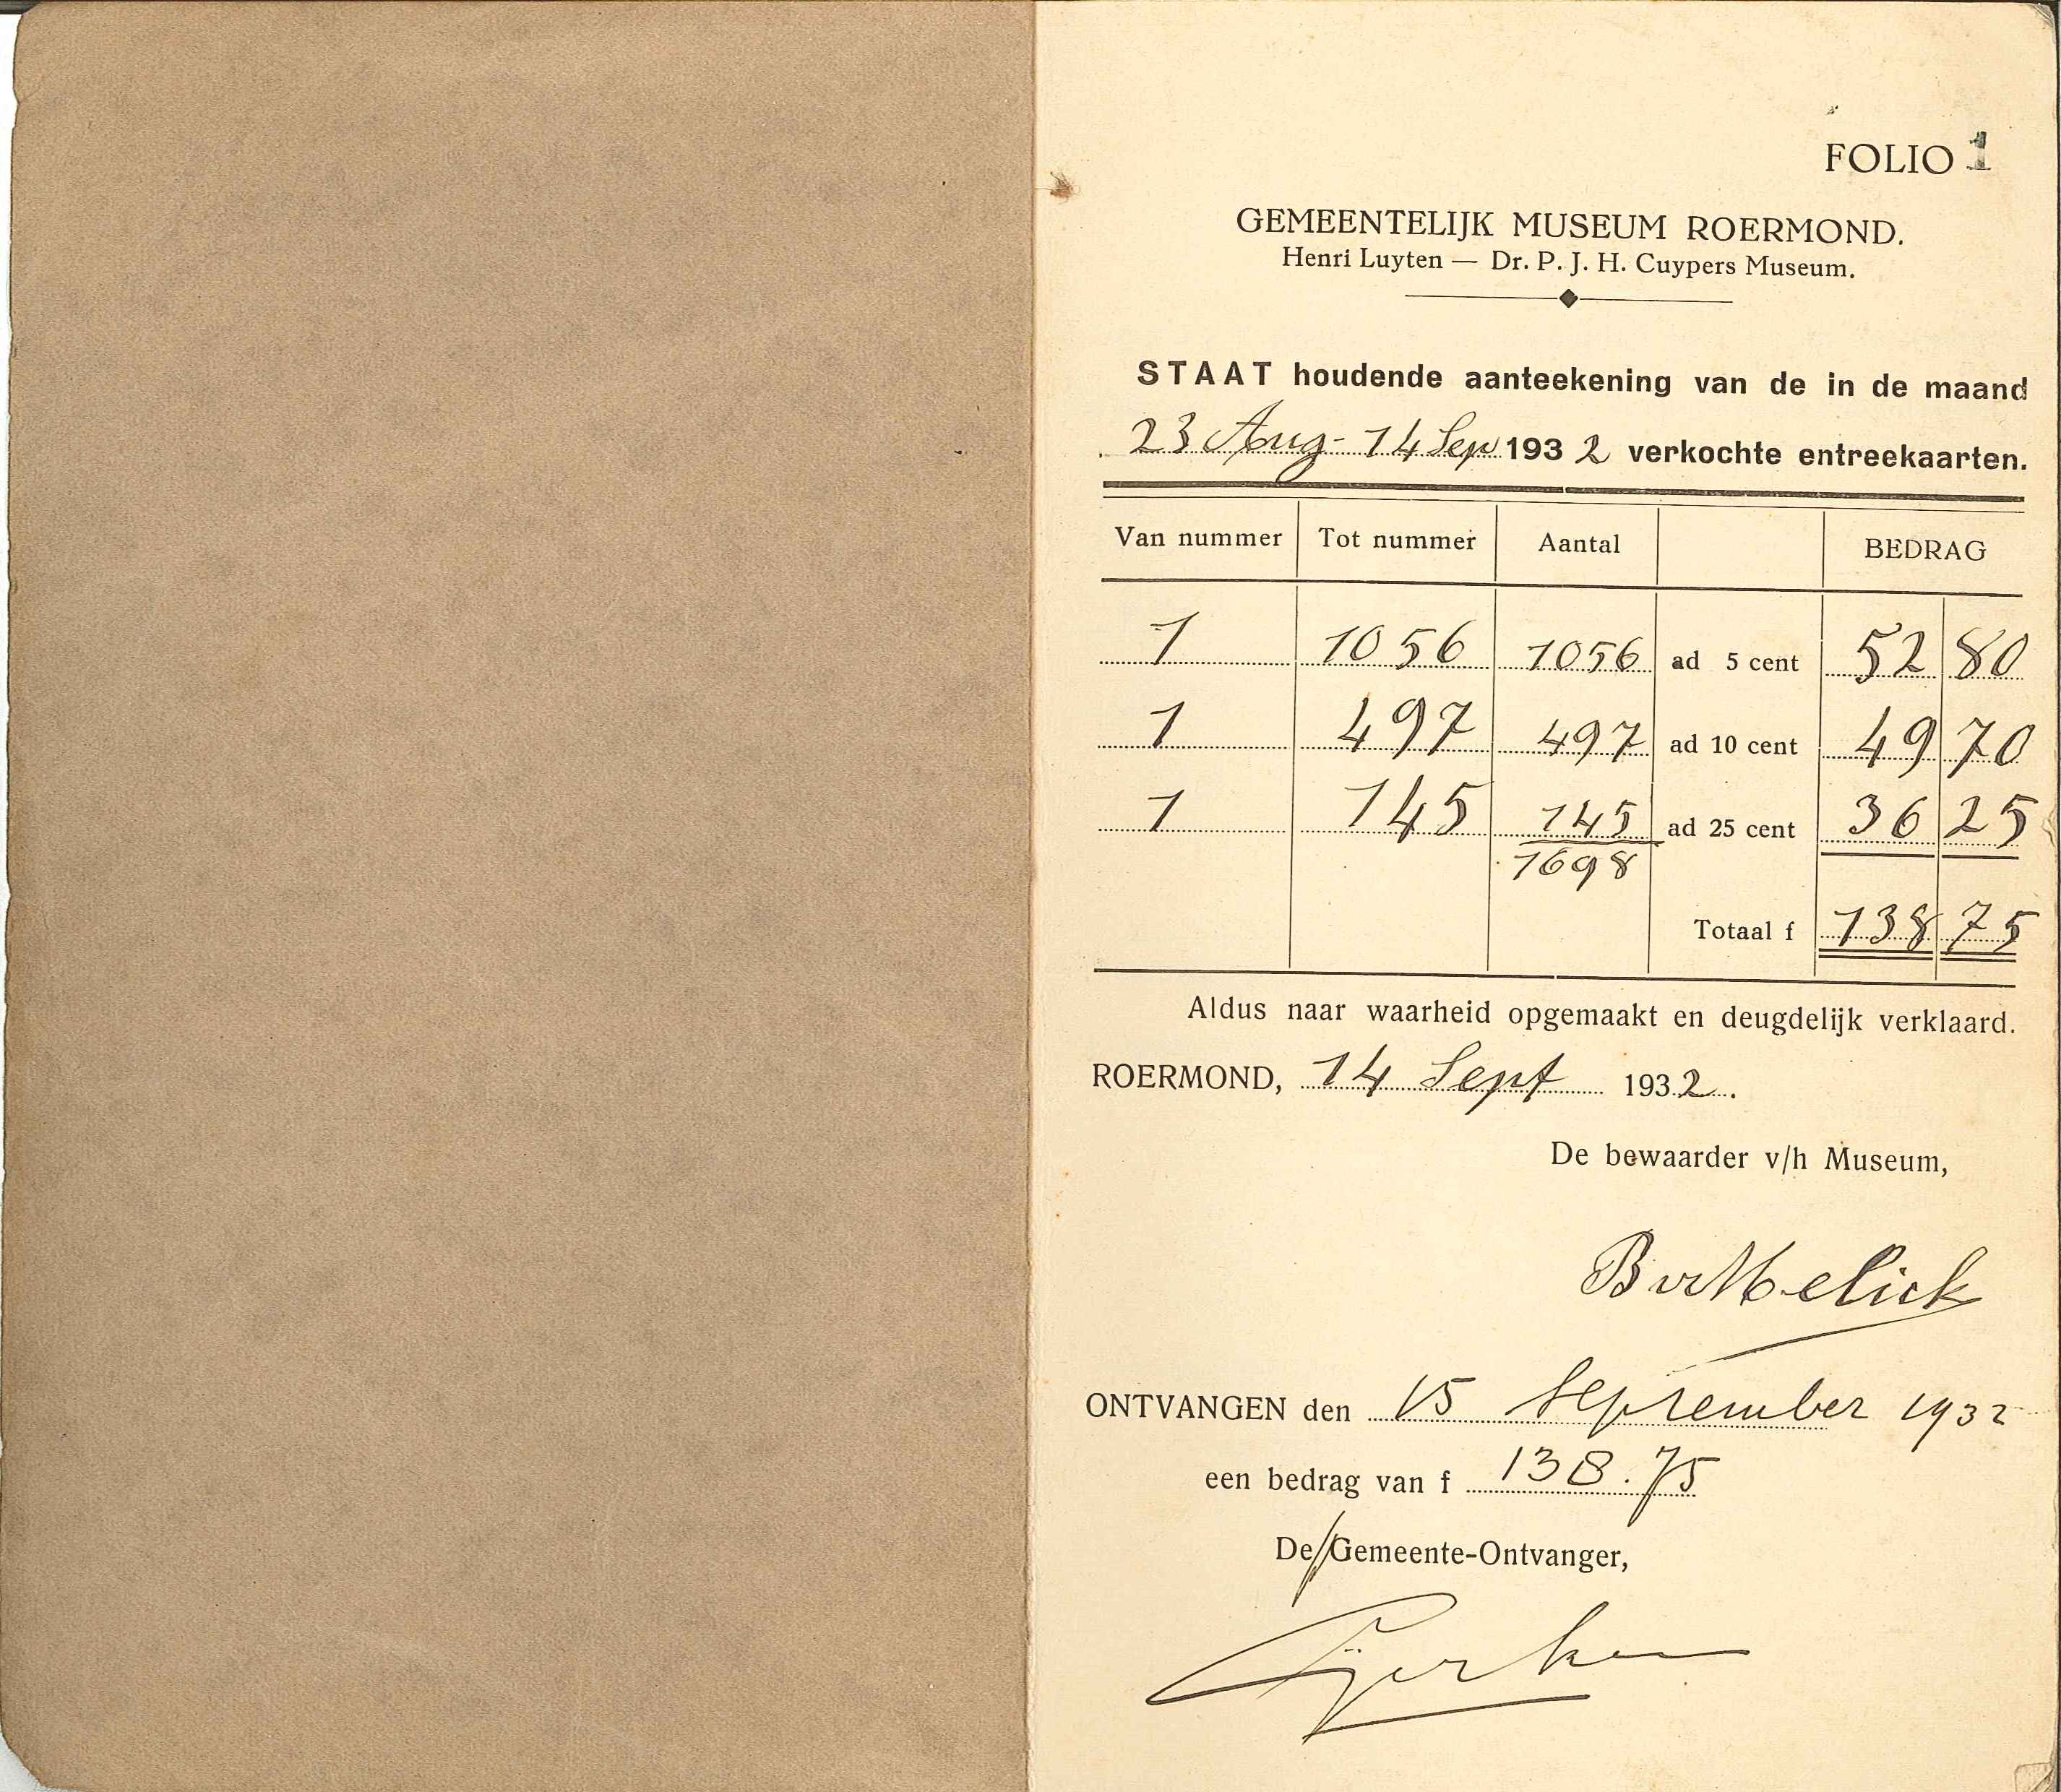 FOLIO 1
GEMEENTELIJK MUSEUM ROERMOND.
Henri Luyten — Dr. P. J. H. Cuypers Museum.
STAAT houdende aanteekening van de in de maand
23 Aug - 14 Sep 1932 verkochte entreekaarten.
Van nummer Tot nummer Aantal BEDRAG
1 1056 1056 ad 5 cent 52 80
1 497 497 ad 10 cent 49 70
1 145 145 ad 25 cent 36 25
1698
Totaal f 138 75
Aldus naar waarheid opgemaakt en deugdelijk verklaard.
ROERMOND, 14 Sept 1932.
De bewaarder v/h Museum,
B v Melick
ONTVANGEN den 15 September 1932
een bedrag van f 138.75
De Gemeente-Ontvanger,